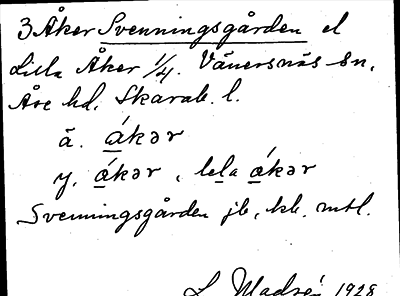 3 Åker Svenningsgården el
Lilla Åker 1/4. Vänersnäs sn,
Åse hd, Skarab. l.
ä. ákər
y. ákər, lela ákər
Svenningsgården jb, kb. mtl.
1928